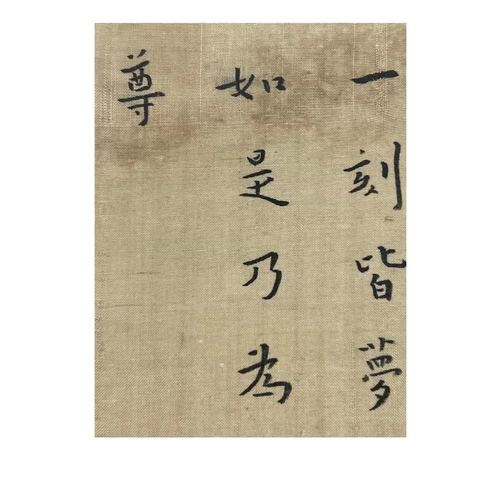 一刻皆夢
如是乃為
尊